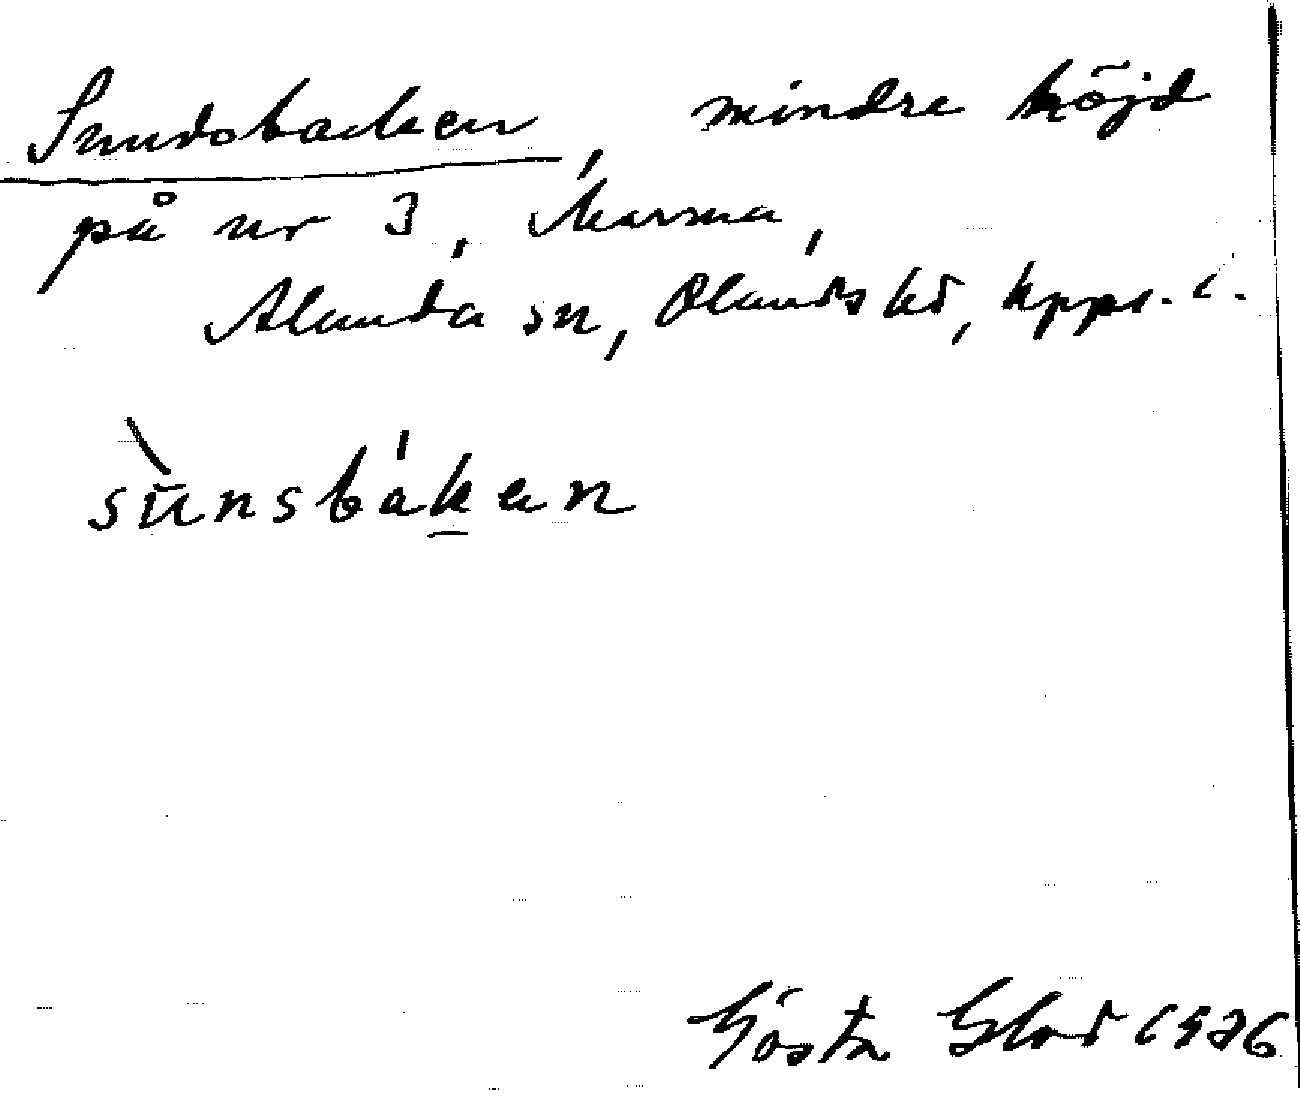 Sundsbacken, mindre höjd
på nr 3, Marma,
Alunda sn, Olands hd, Upps. l.
sùnsbákan
Gösta 1926